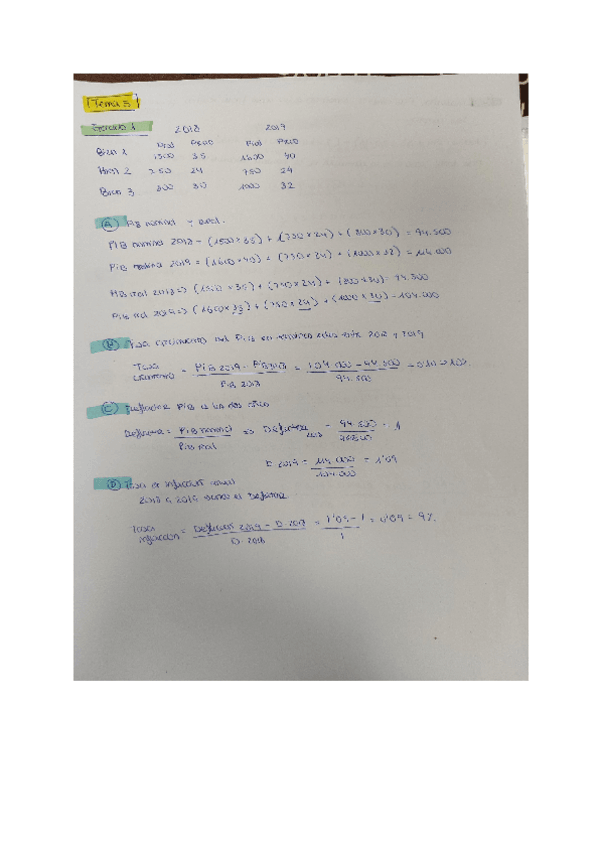 Tema 3
Ejercicio 1 2018 2019
Prod Precio Prod Precio
Bien 1 1500 35 1600 40
Bien 2 750 24 750 24
Bien 3 800 30 1000 32
(A) PIB nominal y real.
PIB nominal 2018 = (1500 x 35) + (750 x 24) + (800 x 30) = 94.500
PIB nominal 2019 = (1600 x 40) + (750 x 24) + (1000 x 32) = 114.000
PIB real 2018 => (1500 x 35) + (750 x 24) + (800 x 30) = 94.500
PIB real 2019 => (1600 x 35) + (750 x 24) + (1000 x 30) = 104.000
(B) Tasa crecimiento real PIB en términos entre 2018 y 2019
Tasa crecimiento = PIB 2019 - PIB 2018 / PIB 2018 = 104.000 - 94.500 / 94.500 = 0'10
(C) Deflactor PIB en los dos años
Deflactor = PIB nominal / PIB real => Deflactor 2018 = 94.500 / = 1
D 2019 = 114.000 / 104.000 = 1'09
(D) Tasa de inflación anual
2018 a 2019 el Deflactor.
Tasa inflación = Deflactor 2019 - D 2018 / D 2018 = 1'09 - 1 / 1 = 0'09 = 9%.